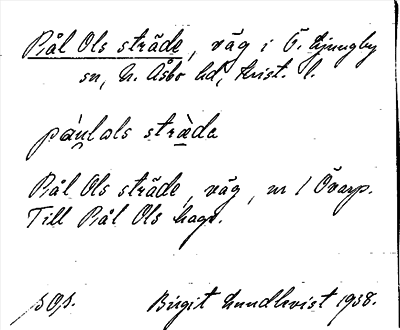 Pål Ols sträde, väg i Ö. Ljungby
sn, N. Åsbo hd, Krist. l.
pàulals stràda
Pål Ols sträde, väg, nr 1 Övarp.
Till Pål Ols hage.
Birgit Lundkvist 1938.